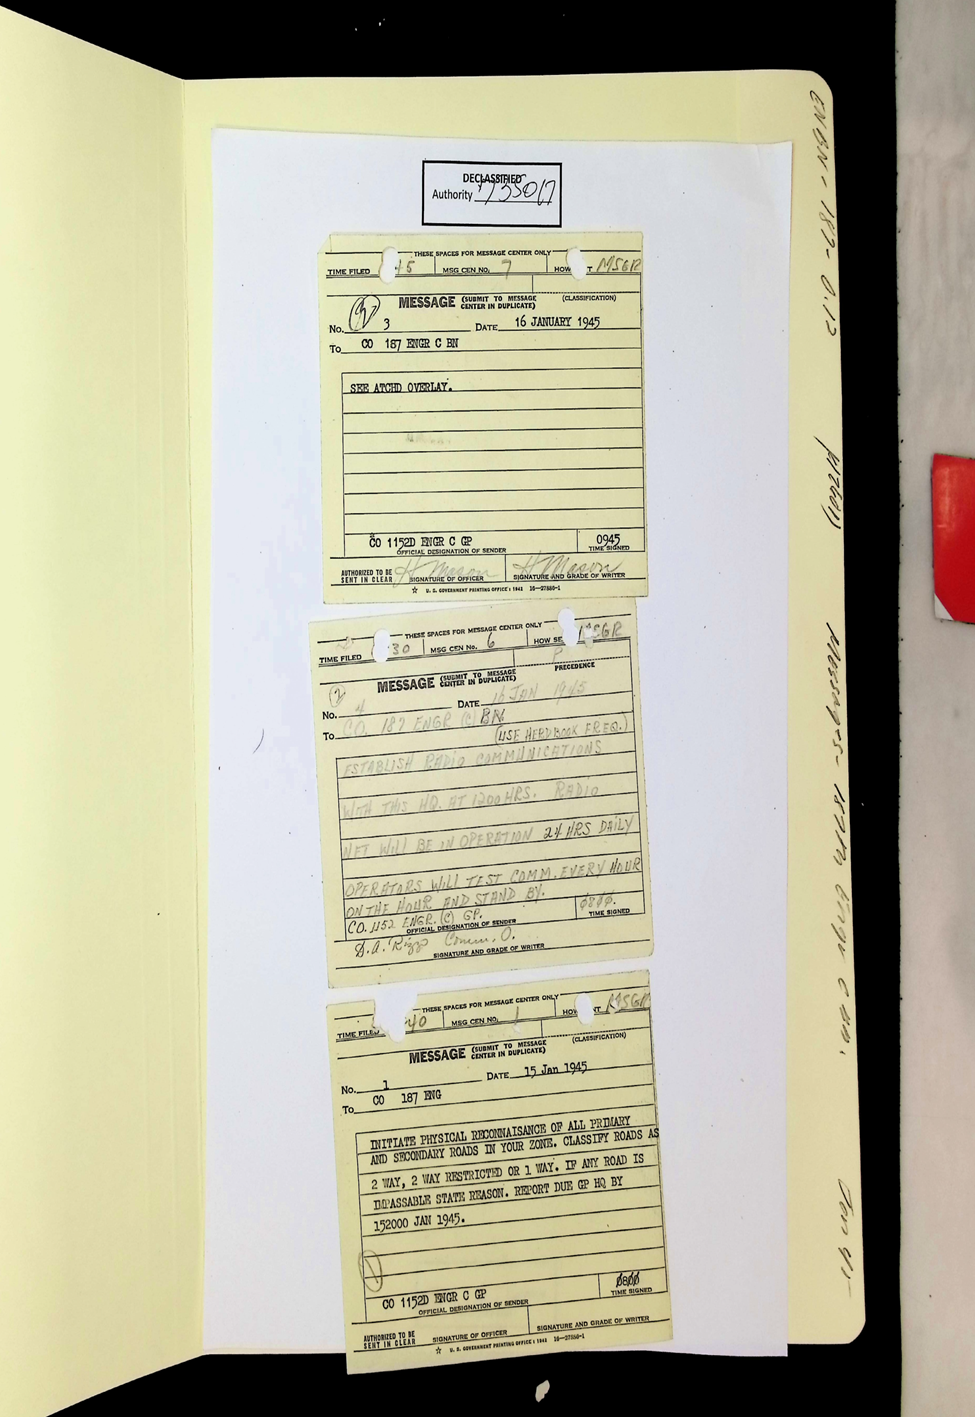 DECLASSIFIED
Authority 735017
THESE SPACES FOR MESSAGE CENTER ONLY
TIME FILED 45 MSG CEN NO. 7 HOW T MSGR
MESSAGE (SUBMIT TO MESSAGE CENTER IN DUPLICATE) (CLASSIFICATION)
2
No. 3 DATE 16 JANUARY 1945
To CO 187 ENGR C BN
SEE ATCHD OVERLAY.
CO 1152D ENGR C GP 0945
OFFICIAL DESIGNATION OF SENDER TIME SIGNED
AUTHORIZED TO BE SENT IN CLEAR H Mason H Mason
SIGNATURE OF OFFICER SIGNATURE AND GRADE OF WRITER
☆ U. S. GOVERNMENT PRINTING OFFICE : 1942 16—27886-1
THESE SPACES FOR MESSAGE CENTER ONLY
TIME FILED 30 MSG CEN No. 6 HOW SE MSGR
P
PRECEDENCE
MESSAGE (SUBMIT TO MESSAGE CENTER IN DUPLICATE)
2
No. 4 DATE 16 JAN 1945
To CO. 187 ENGR (C) BN
(USE HERDBOOK FREQ.)
ESTABLISH RADIO COMMUNICATIONS
WITH THIS HQ. AT 1200 HRS. RADIO
NET WILL BE IN OPERATION 24 HRS DAILY
OPERATORS WILL TEST COMM. EVERY HOUR
ON THE HOUR AND STAND BY.
CO. 1152 ENGR. (C) GP. 0800.
OFFICIAL DESIGNATION OF SENDER TIME SIGNED
Comm. O.
SIGNATURE AND GRADE OF WRITER
THESE SPACES FOR MESSAGE CENTER ONLY
TIME FILED 40 MSG CEN NO. 1 HOW NT MSGR
MESSAGE (SUBMIT TO MESSAGE CENTER IN DUPLICATE) (CLASSIFICATION)
No. 1 DATE 15 Jan 1945
To CO 187 ENG
INITIATE PHYSICAL RECONNAISANCE OF ALL PRIMARY
AND SECONDARY ROADS IN YOUR ZONE. CLASSIFY ROADS AS
2 WAY, 2 WAY RESTRICTED OR 1 WAY. IF ANY ROAD IS
IMPASSABLE STATE REASON. REPORT DUE GP HQ BY
152000 JAN 1945.
CO 1152D ENGR C GP 0800
OFFICIAL DESIGNATION OF SENDER TIME SIGNED
AUTHORIZED TO BE SENT IN CLEAR
SIGNATURE OF OFFICER SIGNATURE AND GRADE OF WRITER
☆ U. S. GOVERNMENT PRINTING OFFICE : 1942 16—27886-1
ENBN-187-0.13
Messages - 187th Engr C Bn.
Jan 45